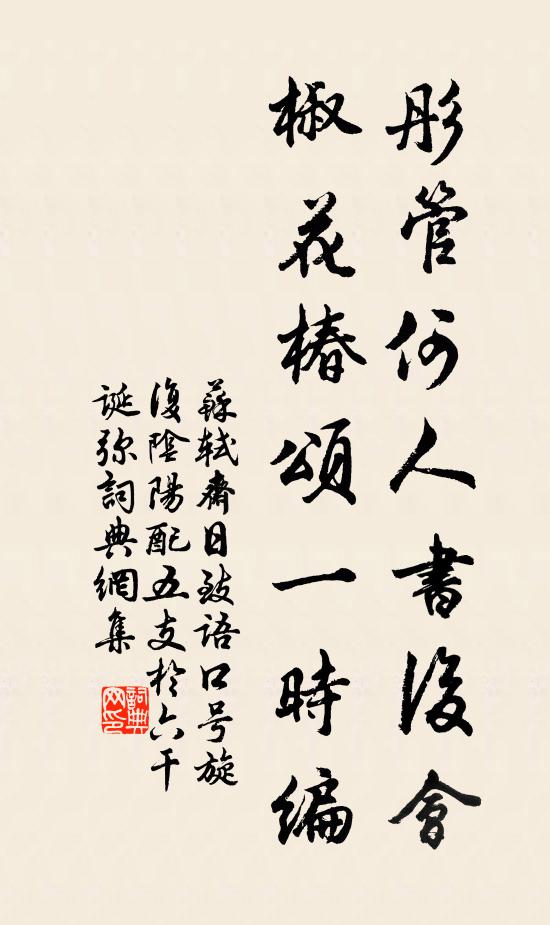 彤管何人書後會
椒花椿頌一時編
蘇軾齋日致語口号旋
復陰陽配五支於六干
誕弥詞典網集
詞典
网印